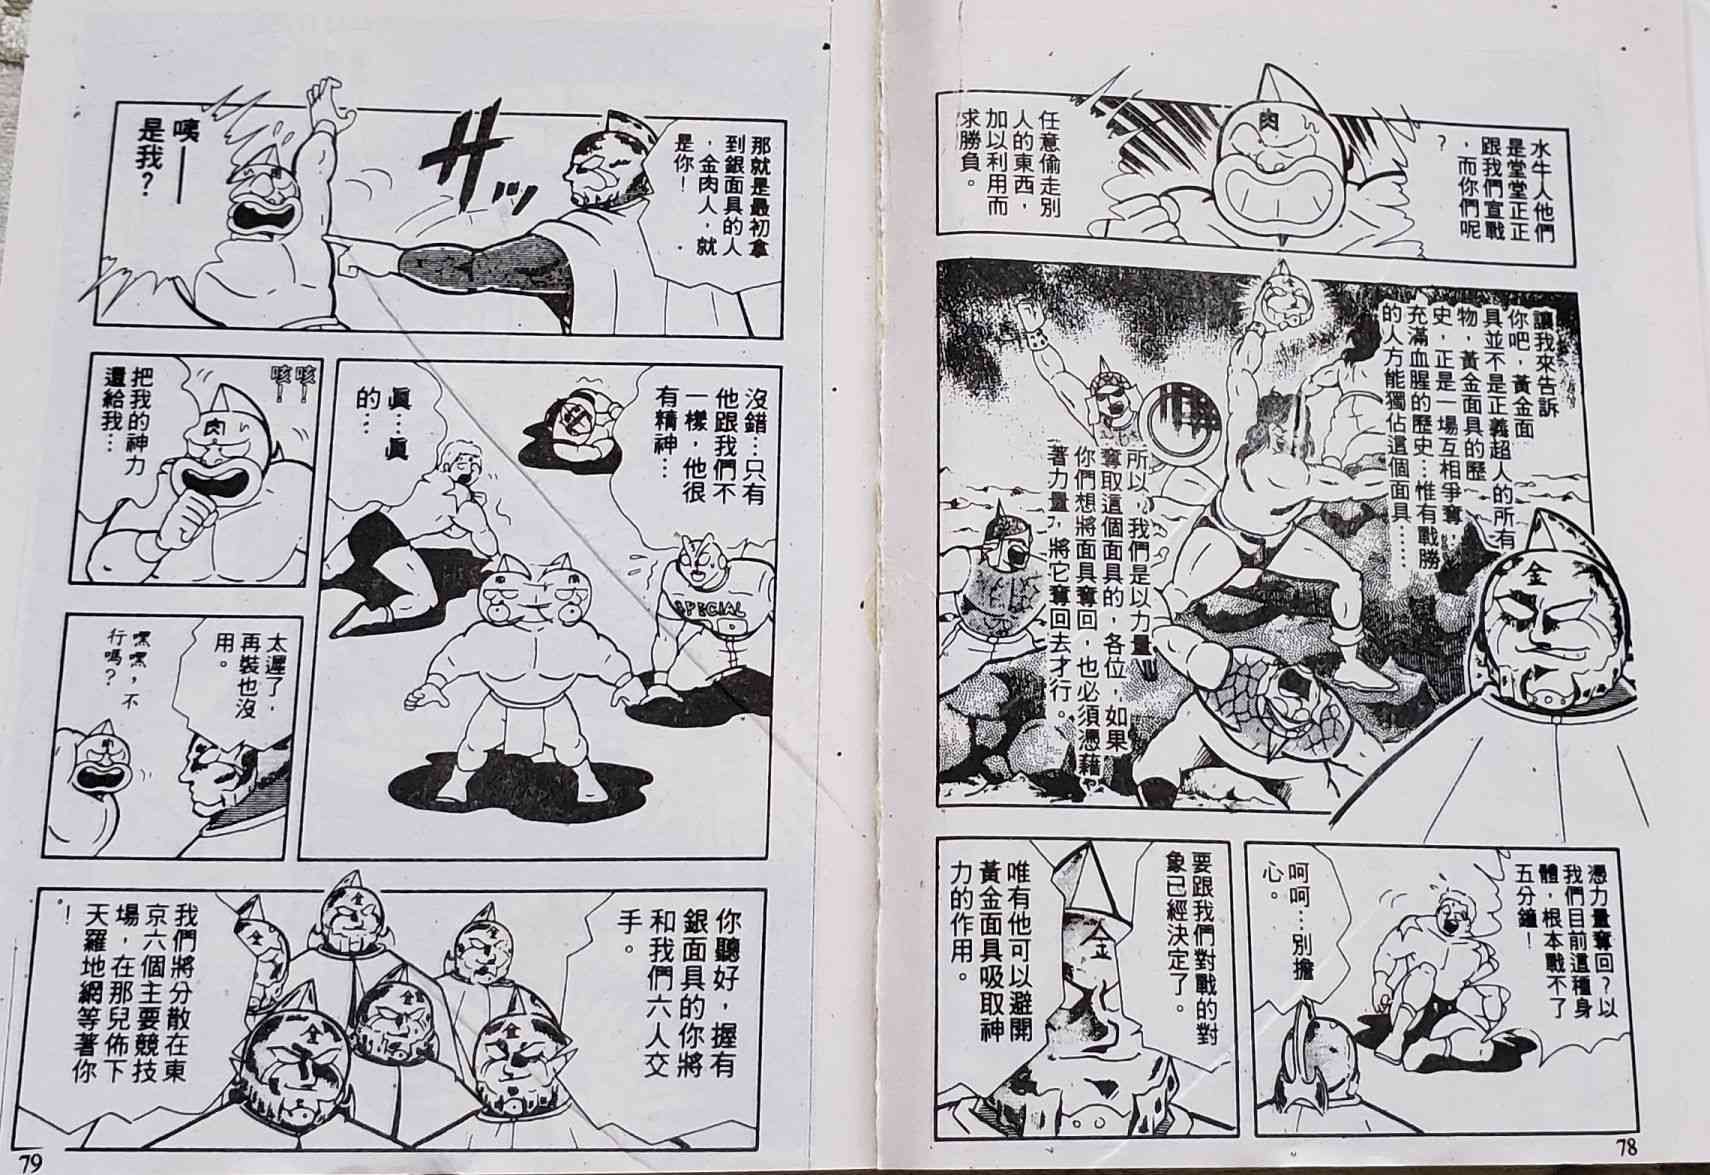 水牛人他們
是堂堂正正
跟我們宣戰
，而你們呢
？
任意偷走別
人的東西，
加以利用而
求勝負。
肉
讓我來告訴
你吧，黃金面
具並不是正義超人的所有
物，黃金面具的歷
史，正是一場互相爭奪，
充滿血腥的歷史…惟有戰勝
的人方能獨佔這個面具……
所以，我們是以力量
奪取這個面具的，各位，如果
你們想將面具奪回，也必須憑藉
著力量，將它奪回去才行。
金
憑力量奪回？以
我們目前這種身
體，根本戰不了
五分鐘！
呵呵…別擔
心。
要跟我們對戰的對
象已經決定了。
唯有他可以避開
黃金面具吸取神
力的作用。
金
78
那就是最初拿
到銀面具的人
，金肉人，就
是你！
ザッ
咦——
是我？
肉
沒錯…只有
他跟我們不
一樣，他很
有精神…
眞…眞
的…
SPECIAL
肉
咳！
咳！
把我的神力
還給我…
肉
太遲了，
再裝也沒
用。
嘿嘿，不
行嗎？
肉
你聽好，握有
銀面具的你將
和我們六人交
手。
我們將分散在東
京六個主要競技
場，在那兒佈下
天羅地網等著你
！
金
金
金
金
金
金
79